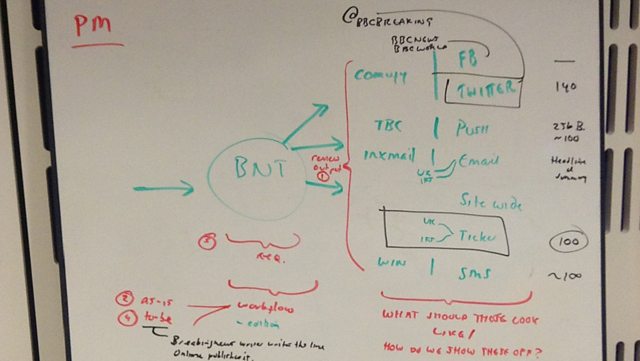 PM
@BBCBREAKING
BBCNEWS
BBCWORLD
FB —
TWITTER 140
TBC | PUSH 256 B.
~100
inxmail | Email Headline
UK Summary
INT
Site wide
UK
INT Ticker 100
WIN | SMS ~100
BNT
review
output
1
3 REQ.
2 as-is workflow
4 to-be - edition
Online publishes it.
WHAT SHOULD THESE LOOK
LIKE/
HOW DO WE SHOW THESE OFF?